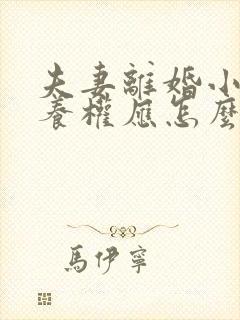 夫妻離婚小
養權應怎麼
馬伊寧